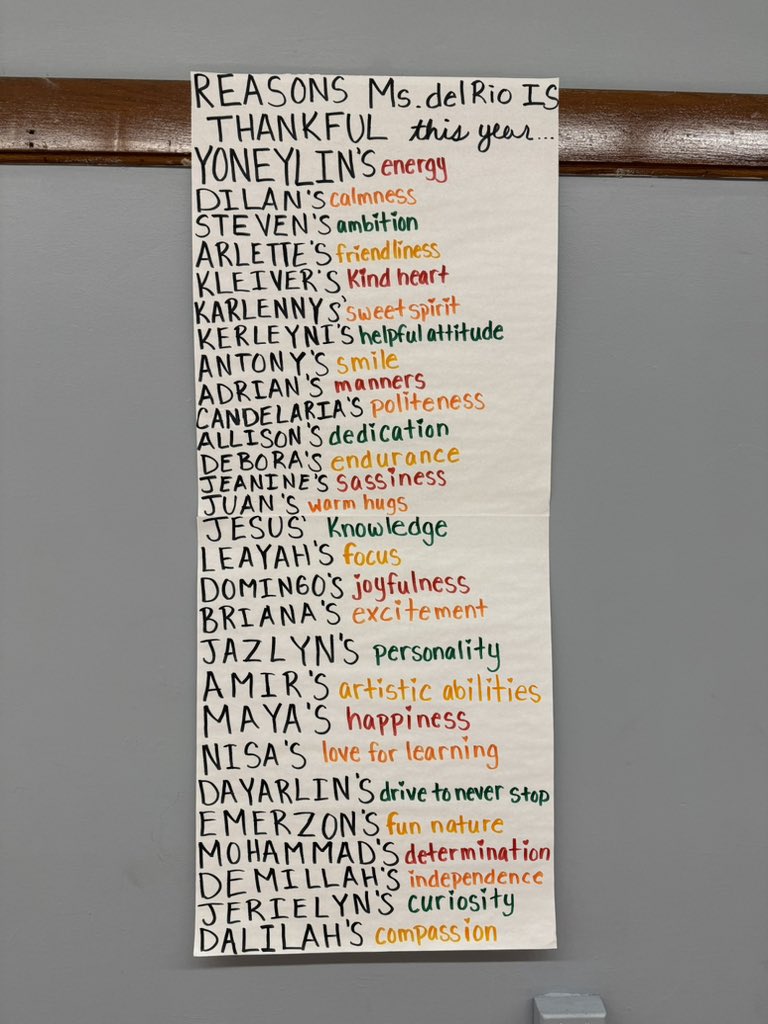 REASONS Ms. delRio IS
THANKFUL this year...
YONEYLIN'S energy
DILAN'S calmness
STEVEN'S ambition
ARLETTE'S friendliness
KLEIVER'S kind heart
KARLENNYS' sweet spirit
KERLEYNI'S helpful attitude
ANTONY'S smile
ADRIAN'S manners
CANDELARIA'S politeness
ALLISON'S dedication
DEBORA'S endurance
JEANINE'S sassiness
JUAN'S warm hugs
JESUS' knowledge
LEAYAH'S focus
DOMINGO'S joyfulness
BRIANA'S excitement
JAZLYN'S personality
AMIR'S artistic abilities
MAYA'S happiness
NISA'S love for learning
DAYARLIN'S drive to never stop
EMERZON'S fun nature
MOHAMMAD'S determination
DEMILLAH'S independence
JERIELYN'S curiosity
DALILAH'S compassion